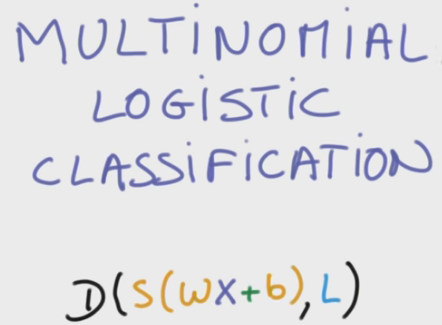 MULTINOMIAL
LOGISTIC
CLASSIFICATION
D(S(WX+b),L)